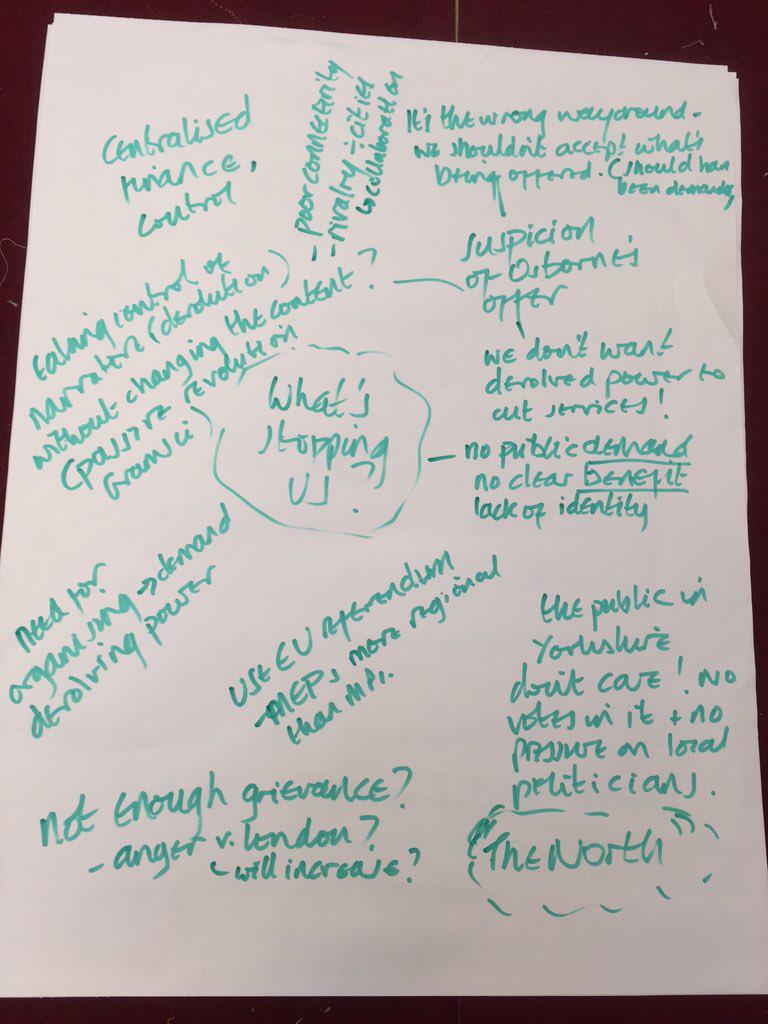 Centralised
finance,
control
- poor connectivity
- rivalry ÷ cities
↳ collaboration
It's the wrong way around.
we shouldn't accept what's
being offered. (should have
been demanding
suspicion
of Osborne's
offer
we don't want
devolved power to
cut services!
taking control of
narrative (devolution)
without changing the content?
(passive revolution
Gramsci
What's
stopping
us?
- no public demand
no clear benefit
lack of identity
need for
organising → demand
devolving power
USE EU referendum
- MEPs more regional
than MPs.
the public in
Yorkshire
don't care! NO
votes in it + no
pressure on local
politicians.
not enough grievance?
- anger v. London?
↳ will increase?
"The North"